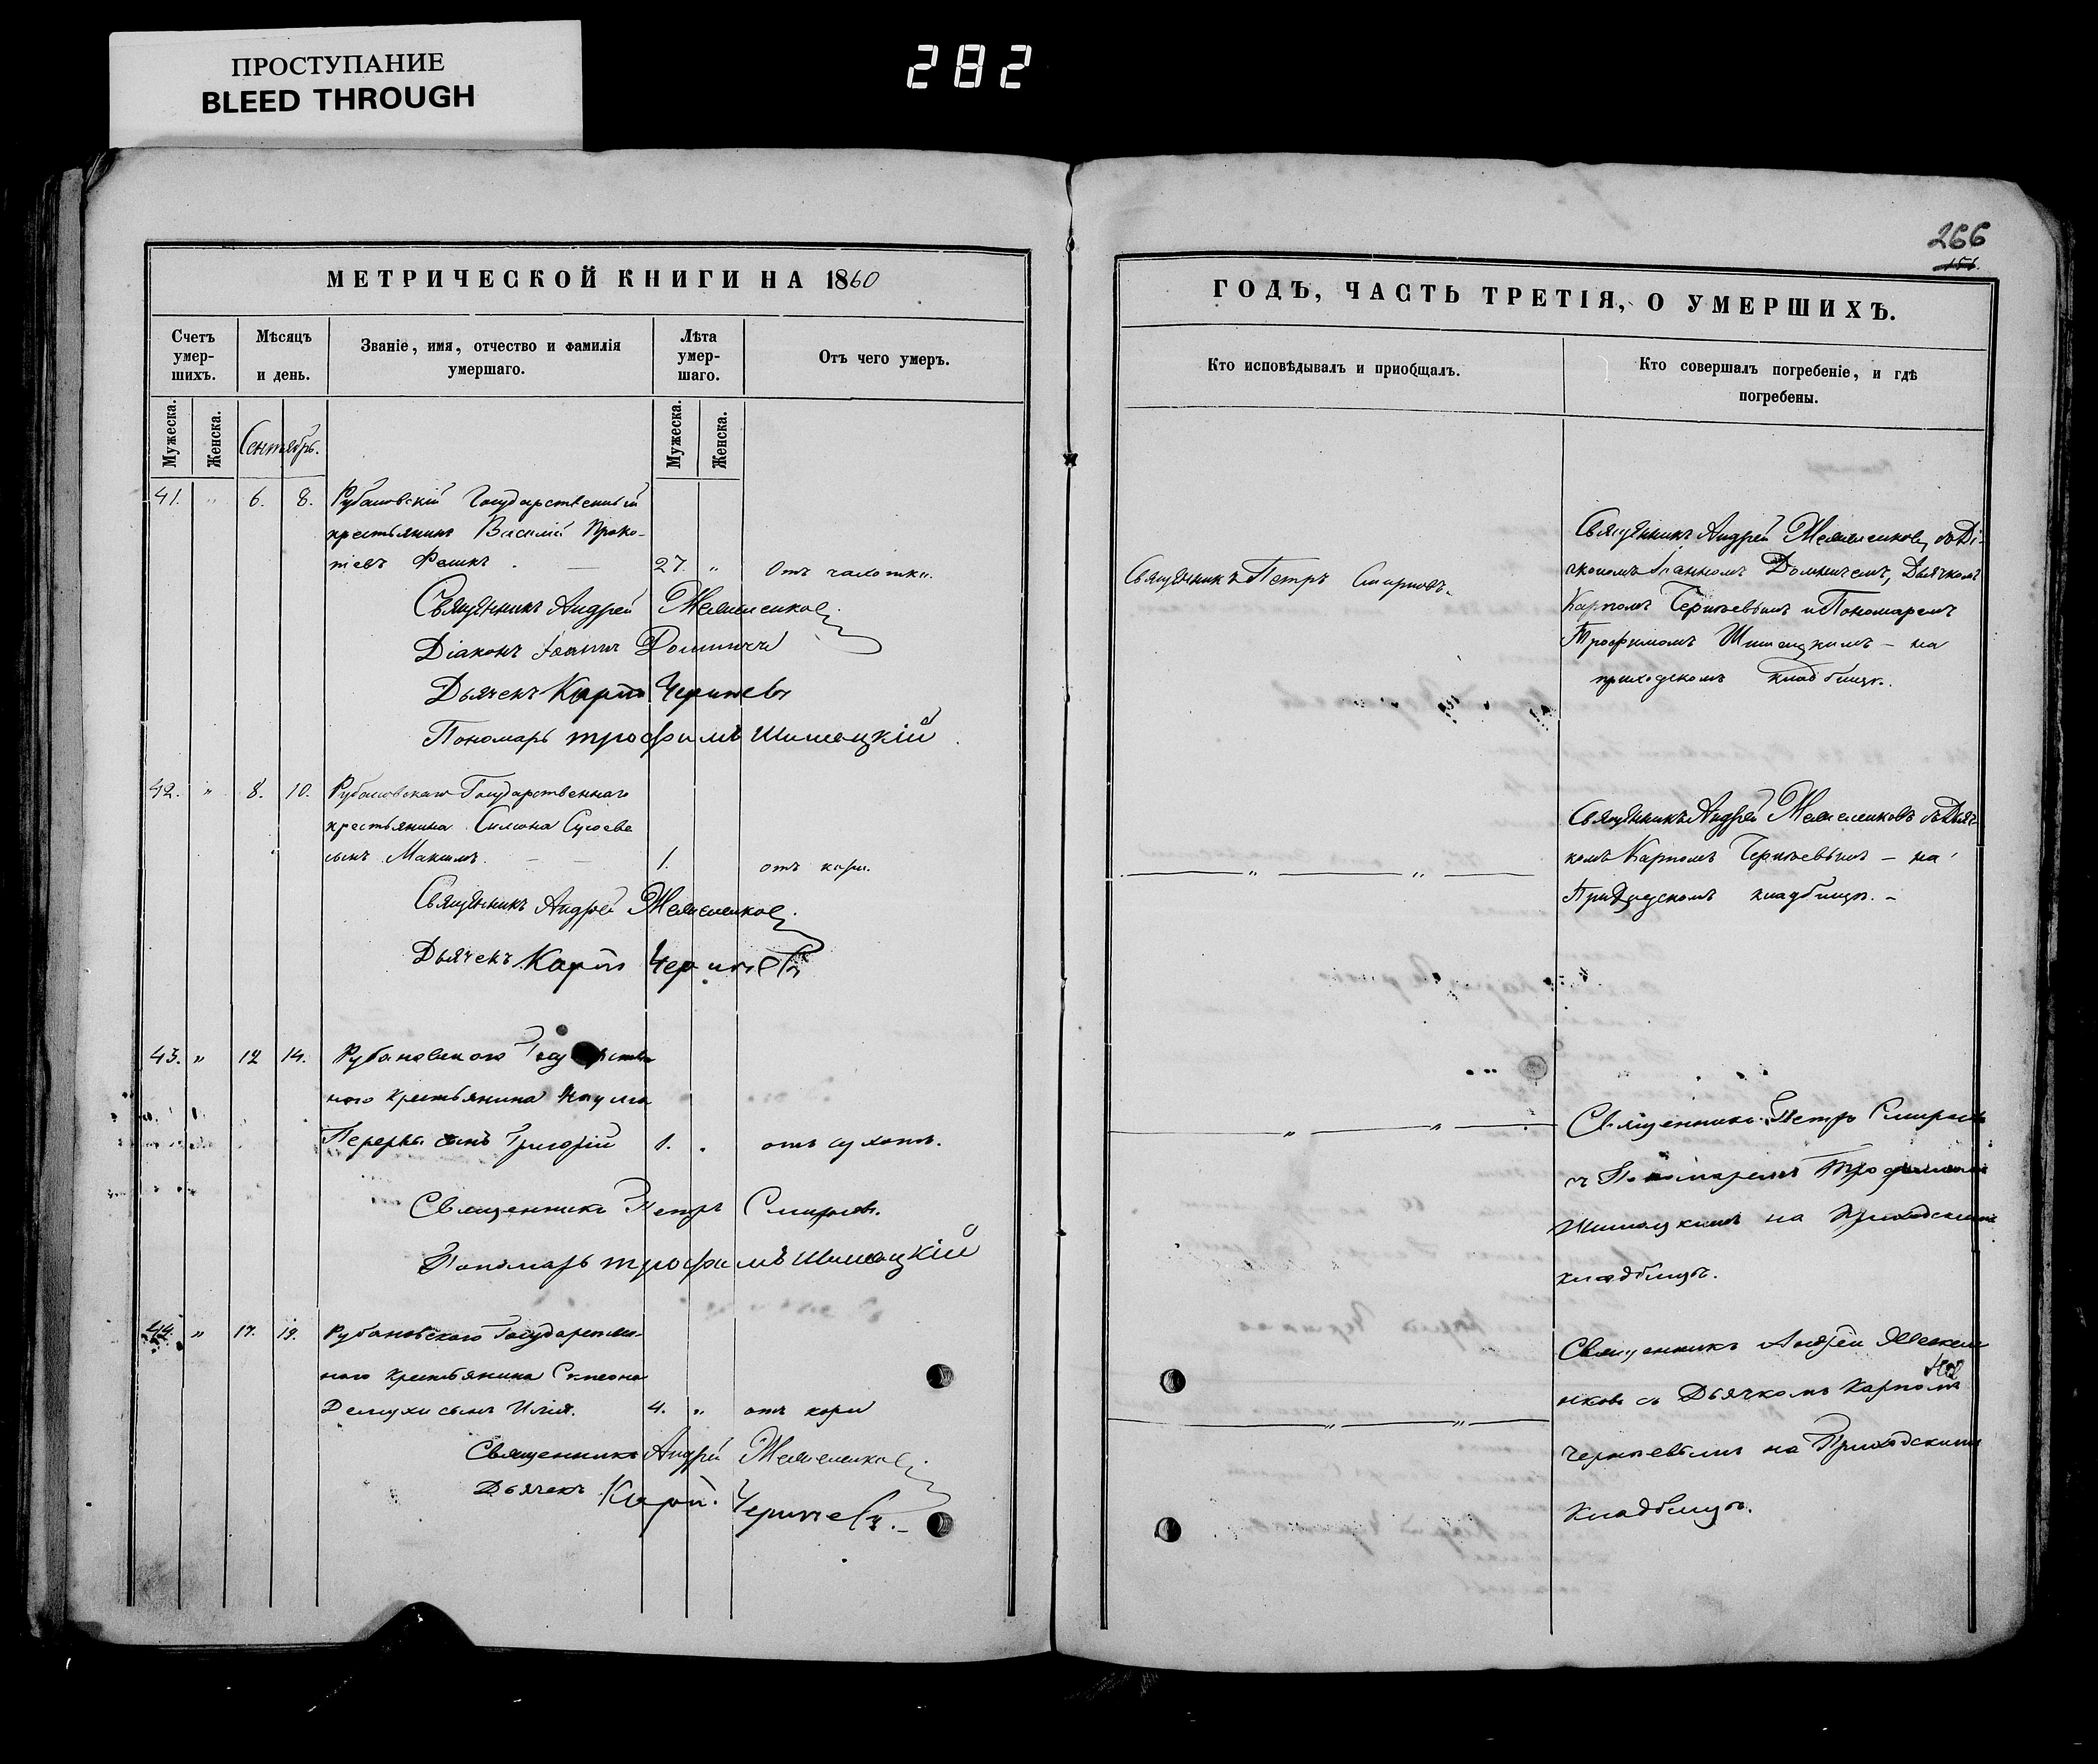 ПРОСТУПАНИЕ
BLEED THROUGH
282
МЕТРИЧЕСКОЙ КНИГИ НА 1860
Счетъ умер-шихъ.
Мѣсяцъ и день.
Званіе, имя, отчество и фамилія умершаго.
Лѣта умер-шаго.
Отъ чего умеръ.
Мужеска.
Женска.
Сентябрь.
Мужеска.
Женска.
41. " 6. 8. Рубановскій Государственный
крестьянинъ Василій Проко-
піевъ 27. " Отъ чахотки.
Священникъ Андрей
Діаконъ Іоаннъ
Дьячекъ Карпъ
Пономарь трофимъ Шишацкій
42. " 8. 10. Рубановскаго Государственнаго
крестьянина Симеона
сынъ Максимъ 1. отъ кори.
Священникъ Андрей
Дьячекъ Карпъ
43. " 12 14. Рубановскаго
наго крестьянина Наума
сынъ Григорій 1. " отъ сухотъ.
Священникъ Петръ Смирновъ.
Пономарь трофимъ Шишацкій
44. " 17. 19. Рубановскаго Государствен-
наго крестьянина
сынъ Илія. 4. " отъ кори
Священникъ Андрей
Дьячекъ Карпъ
266
ГОДЪ, ЧАСТЬ ТРЕТІЯ, О УМЕРШИХЪ.
Кто исповѣдывалъ и приобщалъ.
Кто совершалъ погребеніе, и гдѣ погребены.
Священникъ Петръ Смирновъ.
Священникъ Андрей съ Ді-
акономъ Іоанномъ Дьячкомъ
Карпомъ и Пономаремъ
Трофимомъ Шишацкимъ – на
приходскомъ кладбищѣ.
Священникъ Андрей съ Дьяч-
комъ Карпомъ – на
Приходскомъ кладбищѣ. –
Священникъ Петръ Смирновъ
съ Пономаремъ Трофимомъ
Шишацкимъ на Приходскомъ
кладбищѣ.
Священникъ Андрей
съ Дьячкомъ Карпомъ
на Приходскомъ
Кладбищѣ.